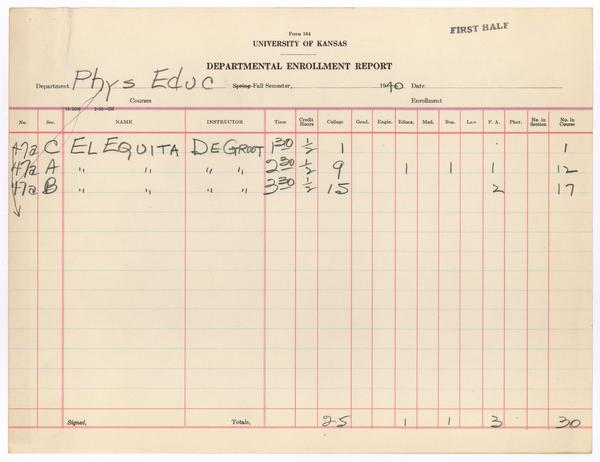 Form 164
FIRST HALF
UNIVERSITY OF KANSAS
DEPARTMENTAL ENROLLMENT REPORT
Department Phys Educ Spring-Fall Semester, 1940 Date
Courses Enrollment
No. Sec. NAME INSTRUCTOR Time Credit Hours College Grad. Engin. Educa. Med. Bus. Law F. A. Phar. No. in Section No. in Course
47a C EL EQUITA DEGROOT 1 30 1/2 1 1
47a A " " " " 2 30 1/2 9 1 1 1 12
47a B " " " " 3 30 1/2 15 2 17
Signed, Totals, 25 1 1 3 30